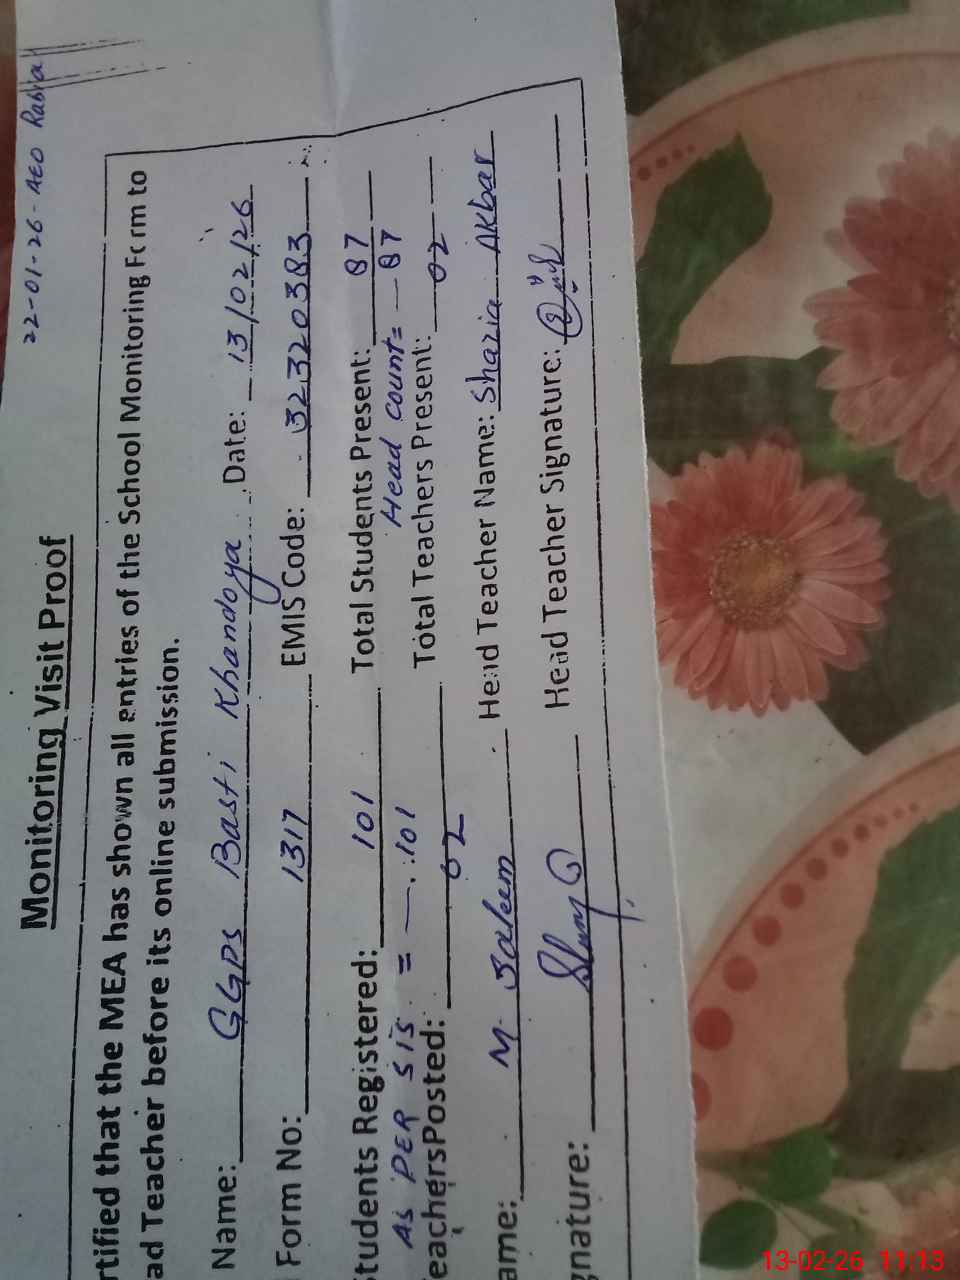 22-01-26-AEO Rabia
Monitoring Visit Proof
rtified that the MEA has shown all entries of the School Monitoring Form to
ad Teacher before its online submission.
Name: GGPS Basti Khandoya Date: 13/02/26
Form No: 1317 EMIS Code: 32320383
Students Registered: 101 Total Students Present: 87
As PER SIS = 101 Head count = 87
eachersPosted: 02 Total Teachers Present: 02
ame: M. Saleem Head Teacher Name: Shazia Akbar
gnature: Head Teacher Signature:
13-02-26 11:13